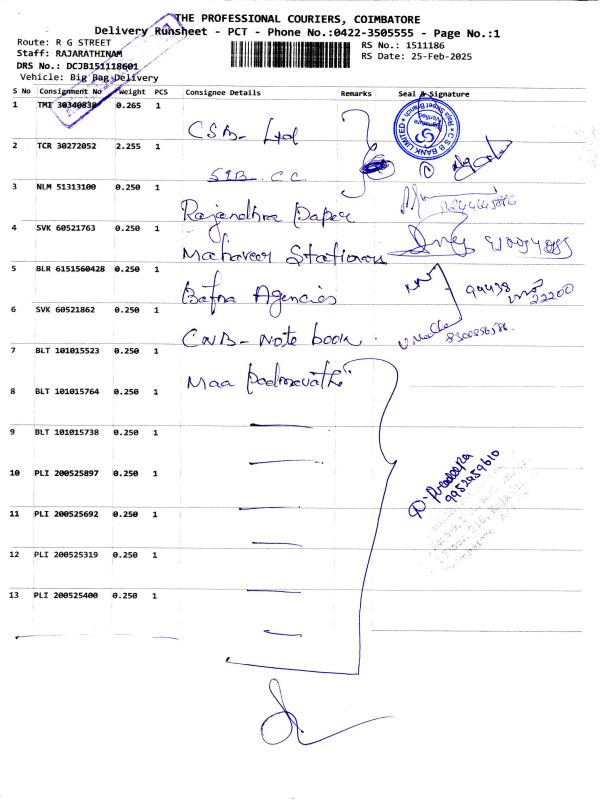 THE PROFESSIONAL COURIERS, COIMBATORE
Delivery Runsheet - PCT - Phone No.:0422-3505555 - Page No.:1
Route: R G STREET
Staff: RAJARATHINAM
DRS No.: DCJB151118601
Vehicle: Big Bag Delivery
RS No.: 1511186
RS Date: 25-Feb-2025
S No Consignment No Weight PCS Consignee Details Remarks Seal & Signature
1 TMI 30340838 0.265 1 CSB- Ltd
CSB BANK LIMITED
2 TCR 30272052 2.255 1 SIB. C.C.
3 NLM 51313100 0.250 1 Rajendhra Paper
4 SVK 60521763 0.250 1 Mahaveer Stationers
5 BLR 6151560428 0.250 1 Bafna Agencies
6 SVK 60521862 0.250 1 CNB- Note book
7 BLT 101015523 0.250 1 Maa Padmavathi
8 BLT 101015764 0.250 1
9 BLT 101015738 0.250 1
10 PLI 200525897 0.250 1
9952959610
11 PLI 200525692 0.250 1
12 PLI 200525319 0.250 1
13 PLI 200525400 0.250 1